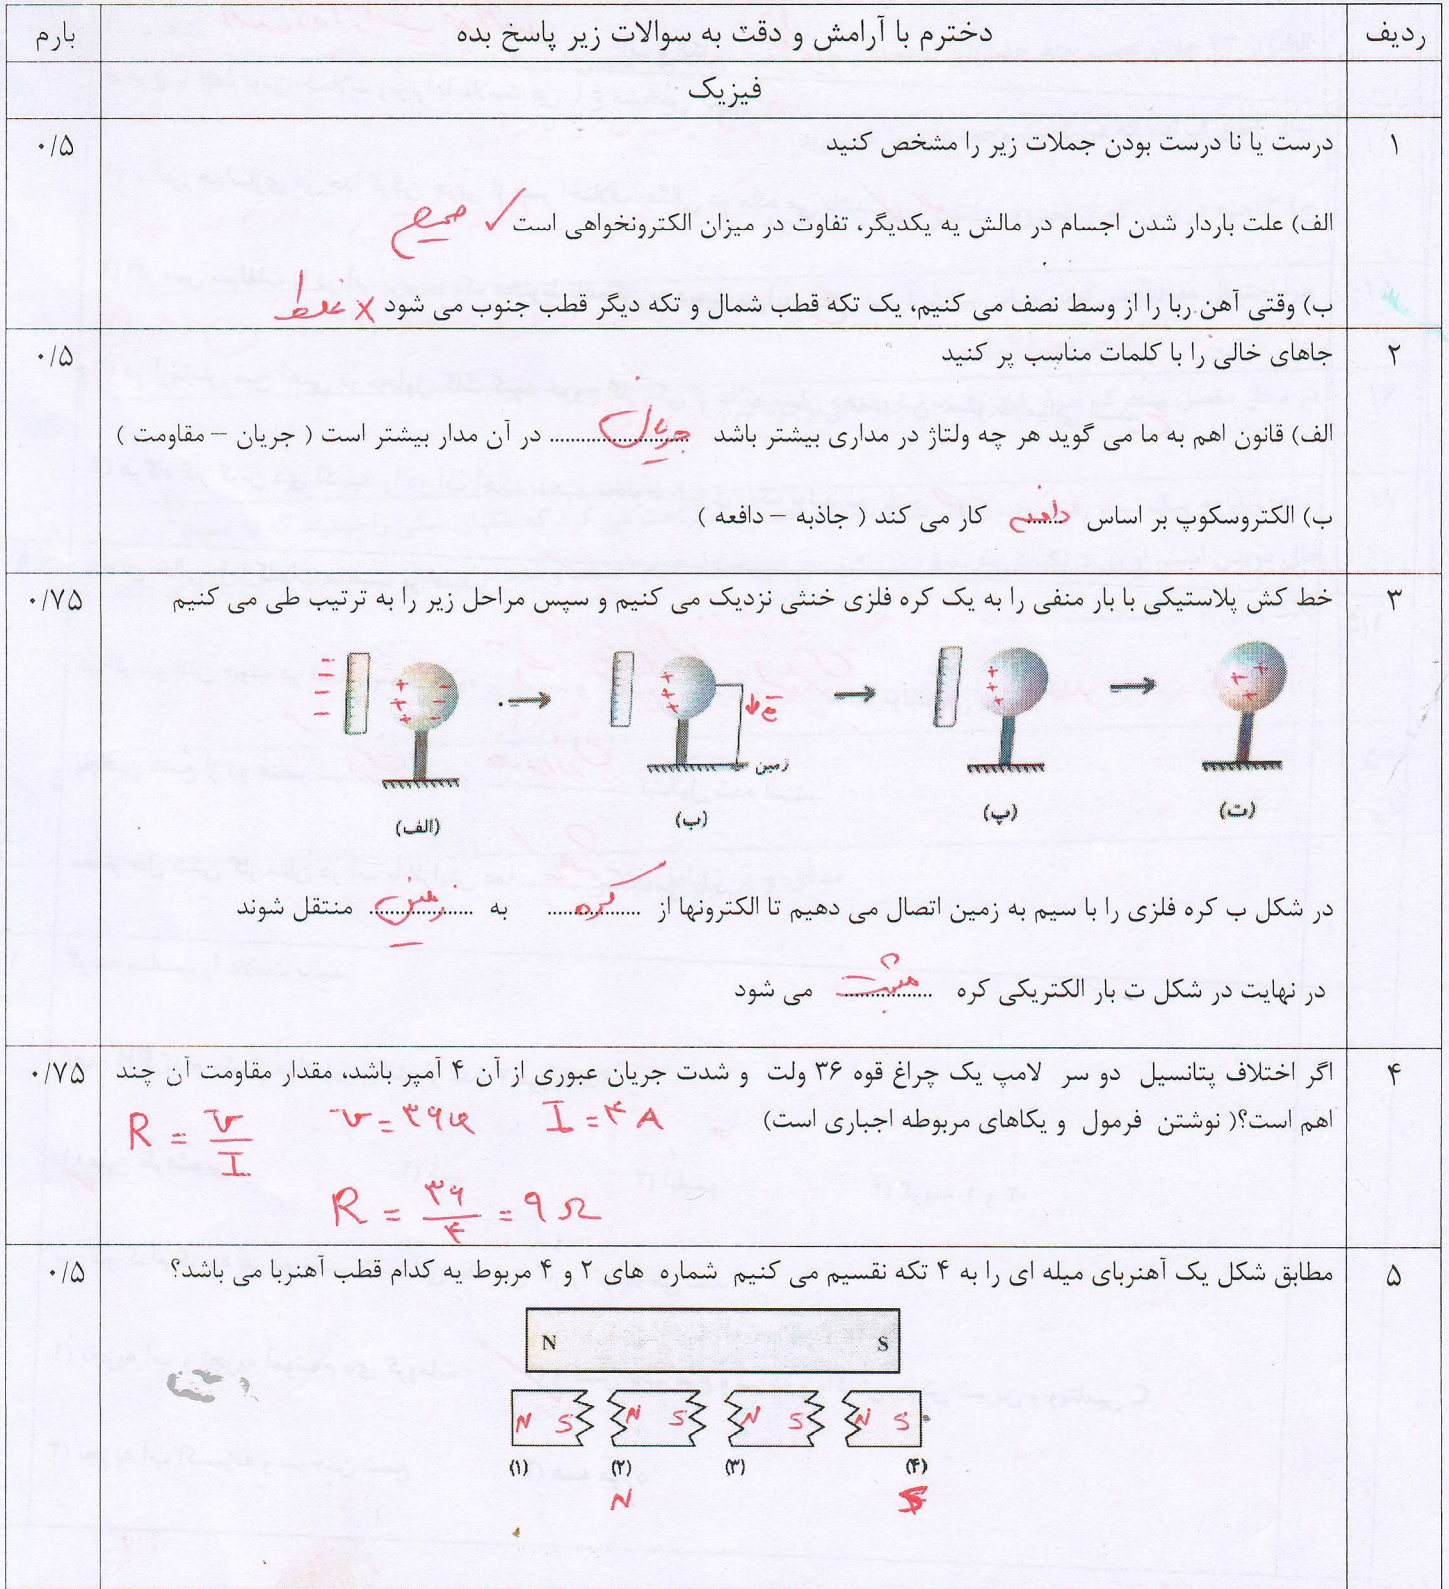 ردیف دخترم با آرامش و دقت به سوالات زیر پاسخ بده بارم
فیزیک
۱ درست یا نا درست بودن جملات زیر را مشخص کنید ۰/۵
الف) علت باردار شدن اجسام در مالش یه یکدیگر، تفاوت در میزان الکترونخواهی است ✓ صحیح
ب) وقتی آهن ربا را از وسط نصف می کنیم، یک تکه قطب شمال و تکه دیگر قطب جنوب می شود × غلط
۲ جاهای خالی را با کلمات مناسب پر کنید ۰/۵
الف) قانون اهم به ما می گوید هر چه ولتاژ در مداری بیشتر باشد جریان در آن مدار بیشتر است ( جریان – مقاومت )
ب) الکتروسکوپ بر اساس دافعه کار می کند ( جاذبه – دافعه )
۳ خط کش پلاستیکی با بار منفی را به یک کره فلزی خنثی نزدیک می کنیم و سپس مراحل زیر را به ترتیب طی می کنیم ۰/۷۵
e⁻
زمین
(الف) (ب) (پ) (ت)
در شکل ب کره فلزی را با سیم به زمین اتصال می دهیم تا الکترونها از کره به زمین منتقل شوند
در نهایت در شکل ت بار الکتریکی کره مثبت می شود
۴ اگر اختلاف پتانسیل دو سر لامپ یک چراغ قوه ۳۶ ولت و شدت جریان عبوری از آن ۴ آمپر باشد، مقدار مقاومت آن چند ۰/۷۵
اهم است؟( نوشتن فرمول و یکاهای مربوطه اجباری است)
R = V/I V = ۳۶V I = ۴ A
R = ۳۶/۴ = ۹ Ω
۵ مطابق شکل یک آهنربای میله ای را به ۴ تکه نقسیم می کنیم شماره های ۲ و ۴ مربوط یه کدام قطب آهنربا می باشد؟ ۰/۵
N S
N S N S N S N S
(۱) (۲) (۳) (۴)
N S